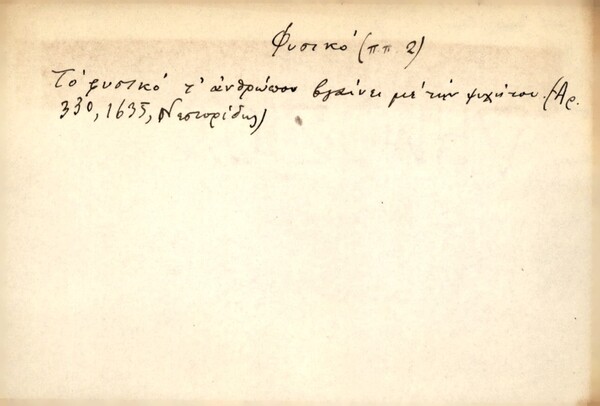 Φυσικό (ππ 2)
Τό φυσικό τ' ἀνθρώπου βγαίνει μέ τήν ψυχή του. (Αρ.
330, 1635, Νεστορίδης)